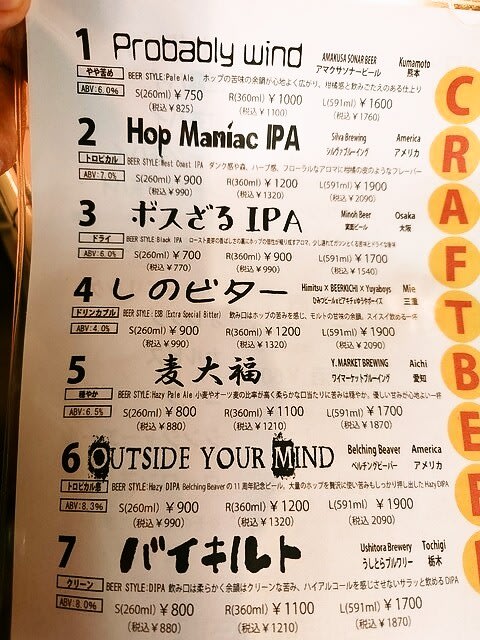 1 Probably wind AMAKUSA SONAR BEER Kumamoto
アマクサソナービール 熊本
やや苦め BEER STYLE:Pale Ale ホップの苦味の余韻が心地よく広がり、柑橘感と飲みごたえのある仕上り
ABV:6.0% S(260ml) ¥750 R(360ml) ¥1000 L(591ml) ¥1600
(税込¥825) (税込¥1100) (税込¥1760)
2 Hop Maniac IPA Silva Brewing America
シルヴァブルーイング アメリカ
トロピカル BEER STYLE:West Coast IPA ダンク感や森、ハーブ感、フローラルなアロマに柑橘の皮のようなフレーバー
ABV:7.0% S(260ml) ¥900 R(360ml) ¥1200 L(591ml) ¥1900
(税込¥990) (税込¥1320) (税込¥2090)
3 ボスざるIPA Minoh Beer Osaka
箕面ビール 大阪
ドライ BEER STYLE:Black IPA ロースト麦芽の香ばしさの裏にホップの個性が織り成すアロマ、少し遅れてガツンとくる苦味とドライな後味
ABV:6.0% S(260ml) ¥700 R(360ml) ¥900 L(591ml) ¥1700
(税込¥770) (税込¥990) (税込¥1540)
4 しのビター Himitsu×BEERKICHI×Yuyaboys Mie
三重
ドリンカブル BEER STYLE:ESB (Extra Special Bitter) 飲み口はホップの苦みを感じ、モルトの甘味の余韻。スイスイ飲める一杯
ABV:4.0% S(260ml) ¥900 R(360ml) ¥1200 L(591ml) ¥1900
(税込¥990) (税込¥1320) (税込¥2090)
5 麦大福 Y.MARKET BREWING Aichi
ワイマーケットブルーイング 愛知
穏やか BEER STYLE:Hazy Pale Ale 小麦やオーツ麦の比率が高く柔らかな口当たりに苦みは穏やか、優しい甘みが心地よい一杯
ABV:6.5% S(260ml) ¥800 R(360ml) ¥1100 L(591ml) ¥1700
(税込¥880) (税込¥1210) (税込¥1870)
6 OUTSIDE YOUR MIND Belching Beaver America
ベルチングビーバー アメリカ
トロピカル感 BEER STYLE:Hazy DIPA Belching Beaverの11周年記念ビール。大量のホップを贅沢に使い苦みもしっかり押し出したHazy DIPA
ABV:8.3% S(260ml) ¥900 R(360ml) ¥1200 L(591ml) ¥1900
(税込¥990) (税込¥1320) (税込2090)
7 バイキルト Ushitora Brewery Tochigi
うしとらブルワリー 栃木
クリーン BEER STYLE:DIPA 飲み口は柔らかく余韻はクリーンな苦み、ハイアルコールを感じさせないサラッと飲めるDIPA
ABV:8.0% S(260ml) ¥800 R(360ml) ¥1100 L(591ml) ¥1700
(税込¥880) (税込¥1210) (税込¥1870)
C
R
A
F
T
B
E
E